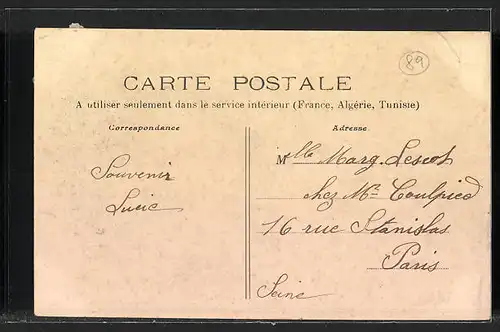 89
CARTE POSTALE
A utiliser seulement dans le service intérieur (France, Algérie, Tunisie)
Correspondance
Adresse
Souvenir
Lucie
Mlle Marg. Lescot
chez Mr Coulpied
16 rue Stanislas
Paris
Seine